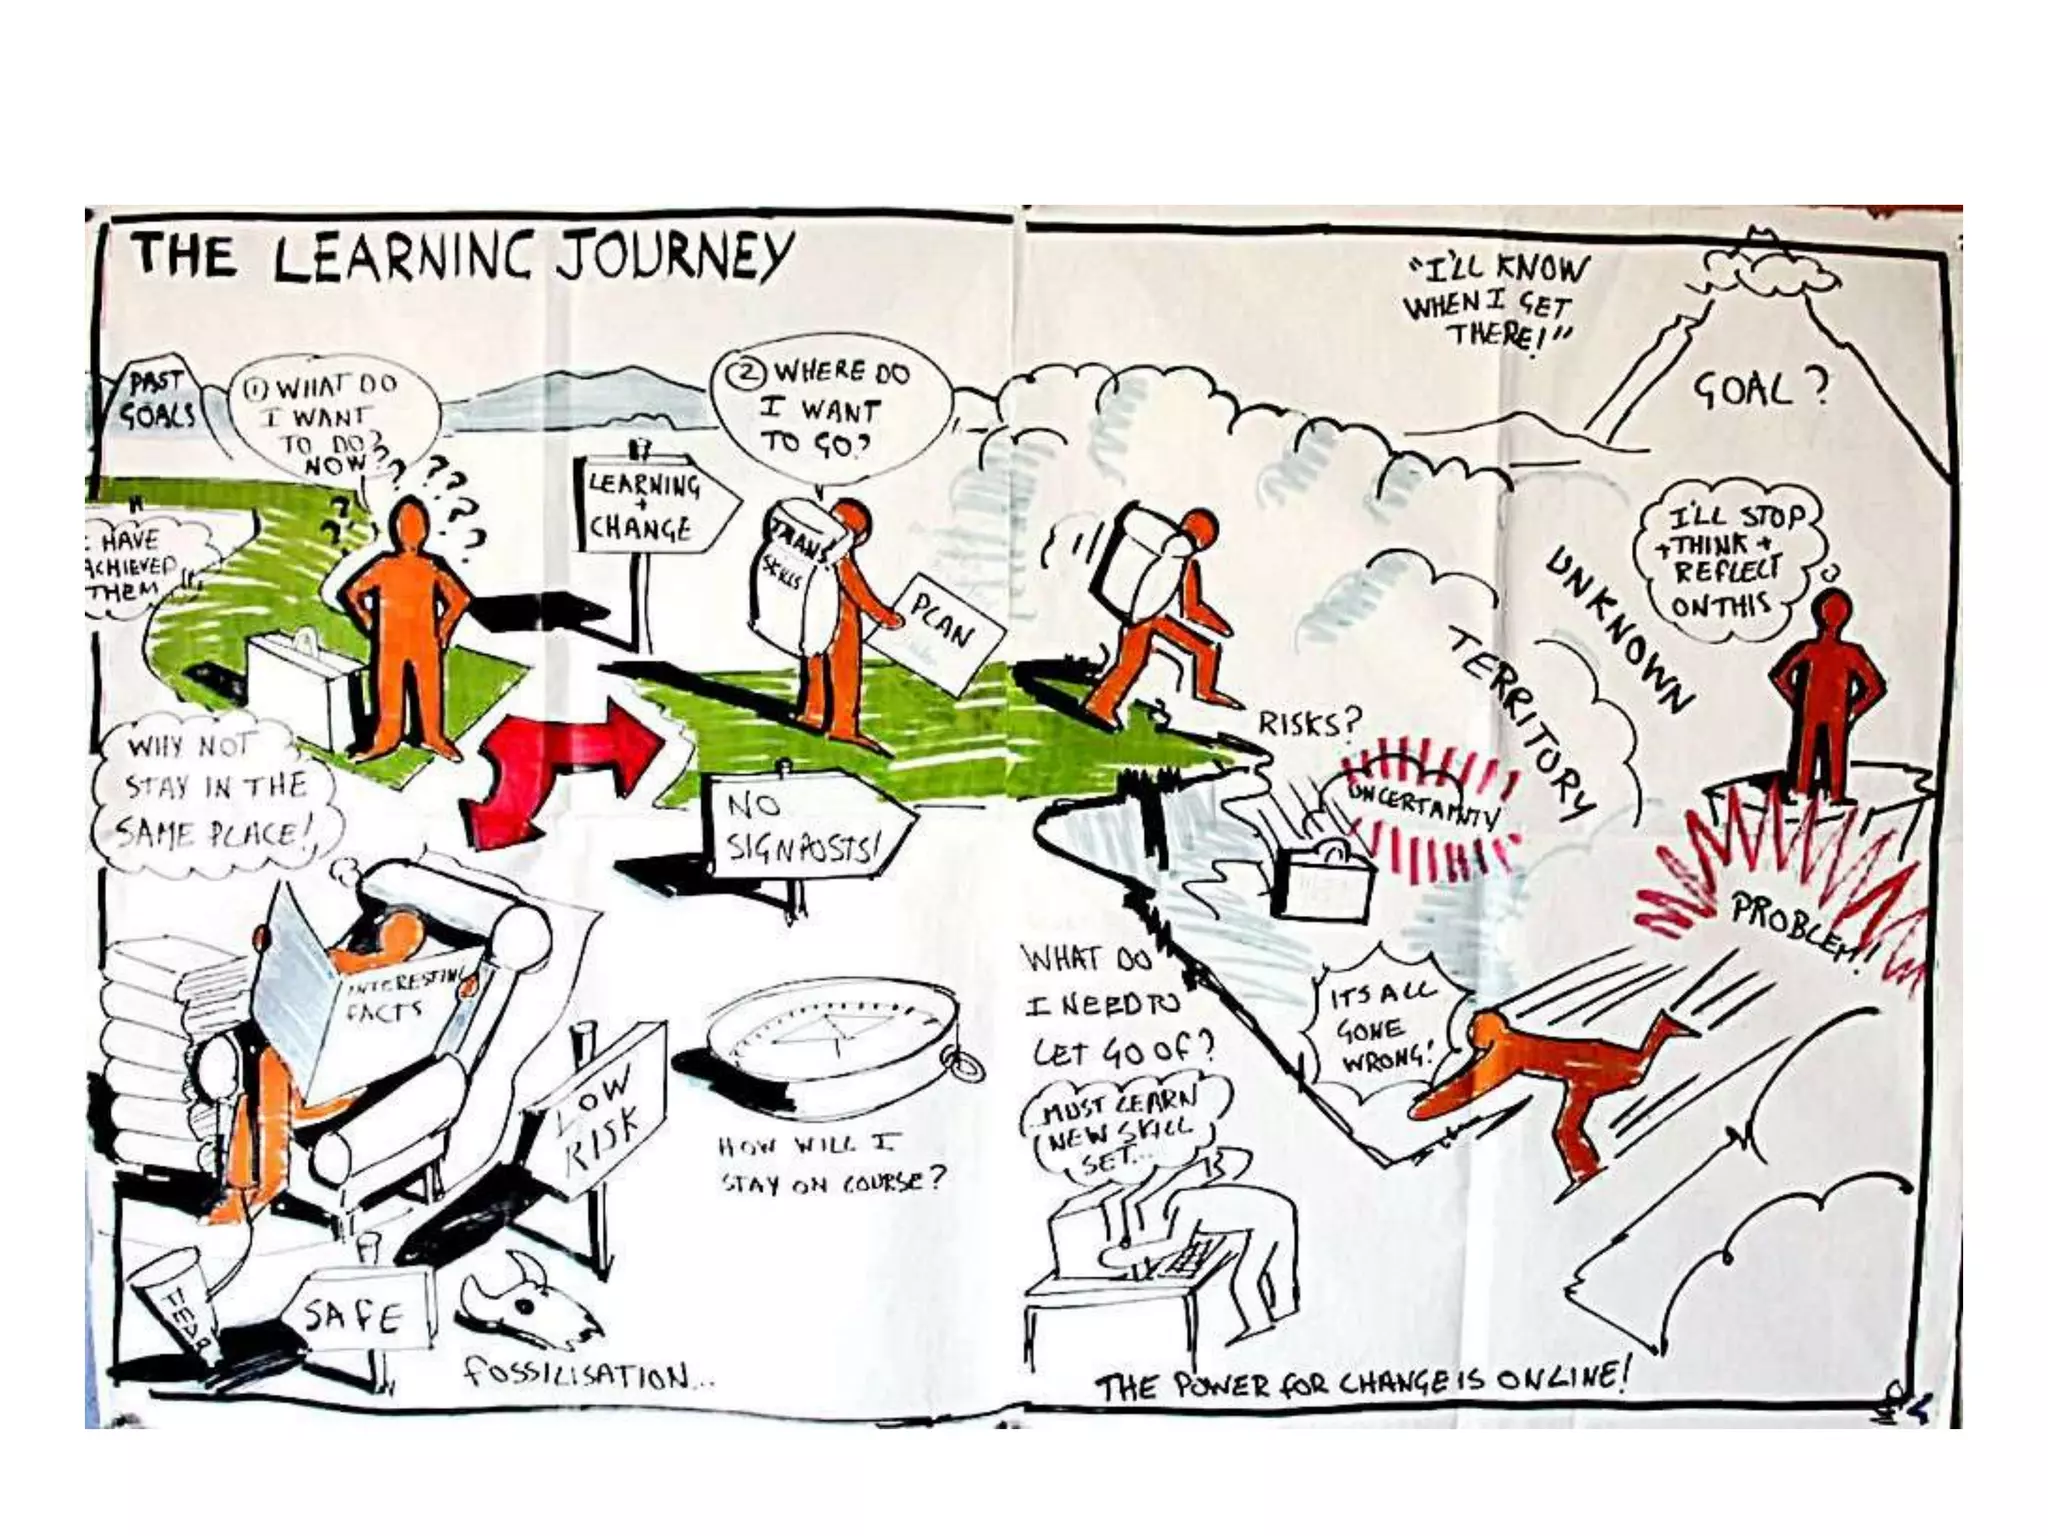 THE LEARNING JOURNEY
PAST
GOALS
I HAVE
ACHIEVED
THEM
① WHAT DO
I WANT
TO DO
NOW?
? ? ? ? ? ? ? ? ?
LEARNING
+
CHANGE
② WHERE DO
I WANT
TO GO?
TRANS.
SKILLS
PLAN
"I'LL KNOW
WHEN I GET
THERE!"
GOAL?
I'LL STOP
+ THINK +
REFLECT
ON THIS
UNKNOWN
TERRITORY
RISKS?
UNCERTAINTY
PROBLEM!
WHY NOT
STAY IN THE
SAME PLACE!
NO
SIGNPOSTS!
INTERESTING
FACTS
LOW
RISK
SAFE
FOSSILISATION...
HOW WILL I
STAY ON COURSE?
WHAT DO
I NEED TO
LET GO OF?
MUST LEARN
NEW SKILL
SET...
ITS ALL
GONE
WRONG!
THE POWER FOR CHANGE IS ONLINE!